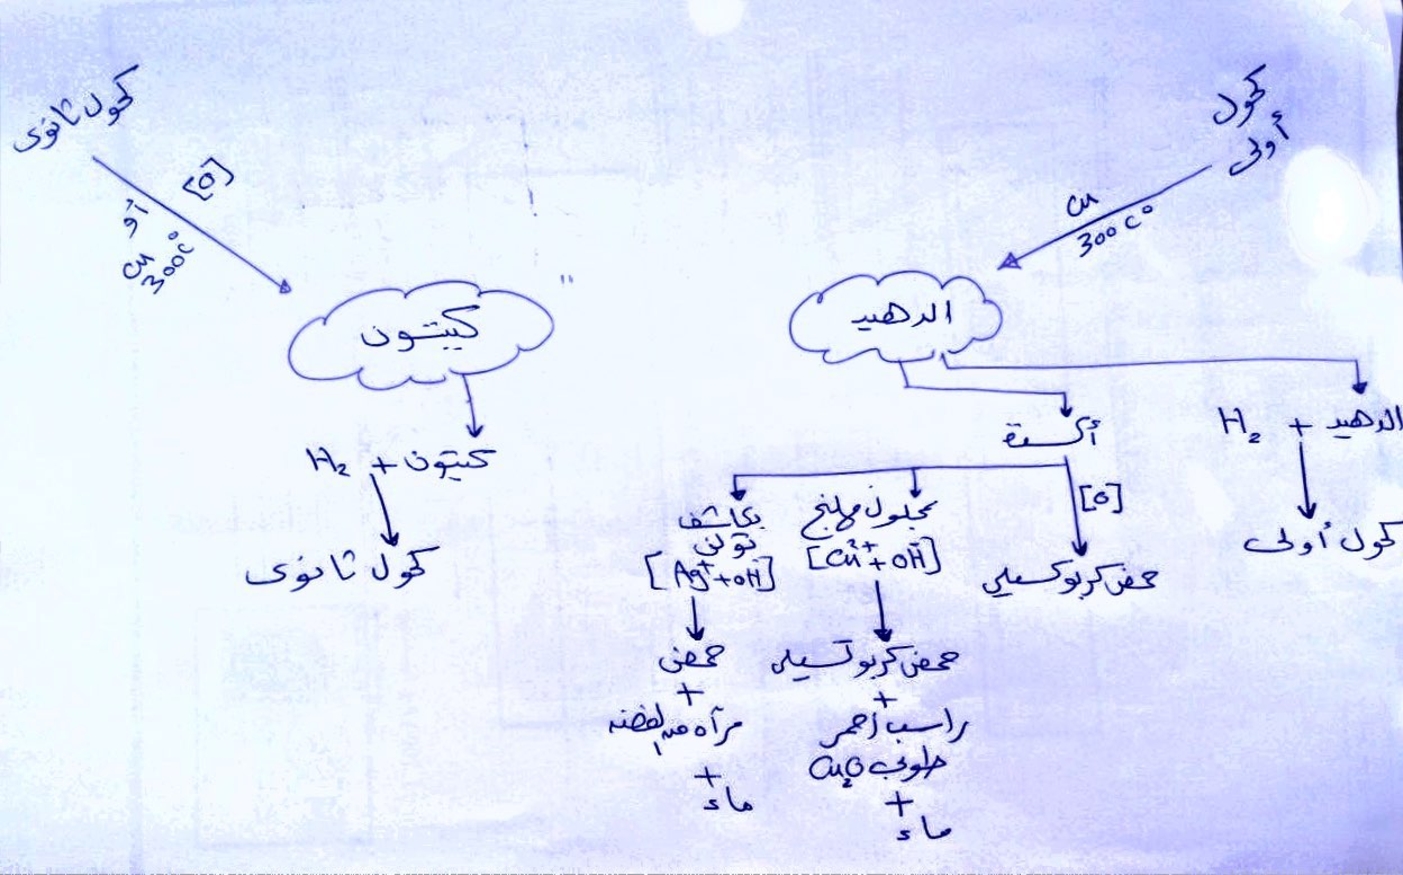 كحول
أولى
Cu
300 c°
الدهيد
الدهيد + H₂
كحول أولى
أكسدة
[O]
حمض كربوكسيلى
بمحلول فهلنج
[Cu²⁺ + OH⁻]
حمض كربوكسيلى
+
راسب أحمر
طوبى Cu₂O
+
ماء
بكاشف
تولن
[Ag⁺ + OH⁻]
حمض
+
مرآه من الفضه
+
ماء
كحول ثانوى
[O]
أو
Cu
300c°
كيتون
كيتون + H₂
كحول ثانوى